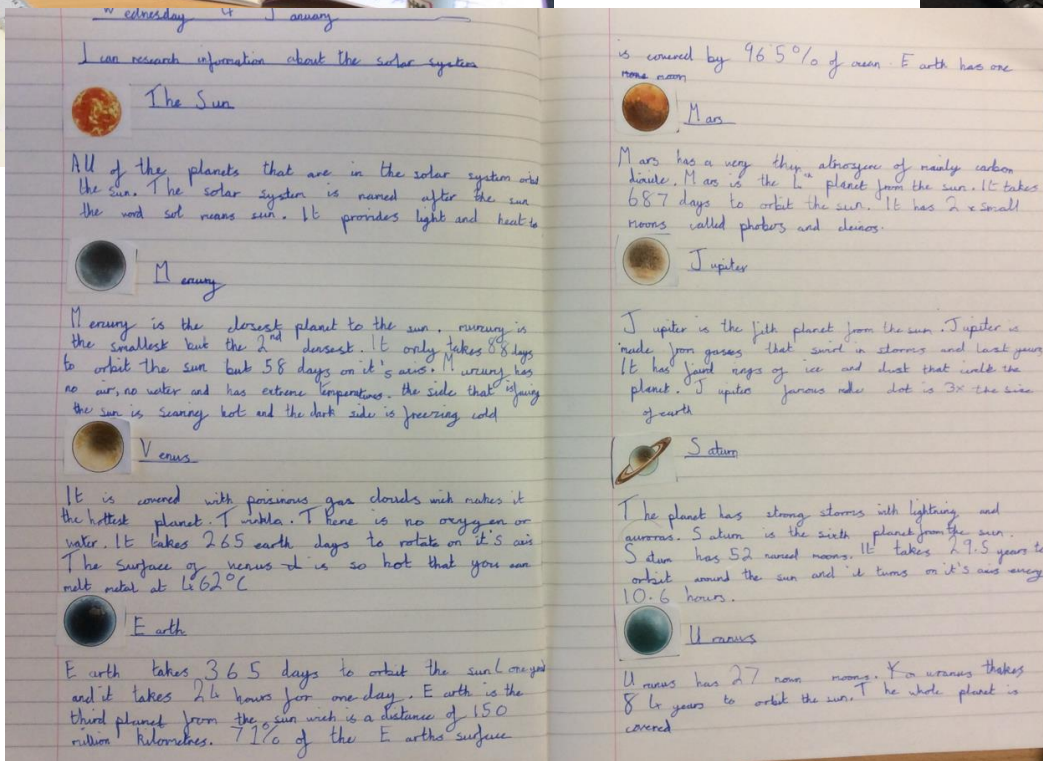 Wednesday 4 January
I can research information about the solar system
The Sun
All of the planets that are in the solar system orbit
the sun. The solar system is named after the sun
the word sol means sun. It provides light and heat to
Mercury
Mercury is the closest planet to the sun. murcury is
the smallest but the 2nd densest. It only takes 88 days
to orbit the sun but 58 days on it's axis. Murcury has
no air, no water and has extreme temperatures. the side that is facing
the sun is scaring hot and the dark side is freezing cold
Venus
It is covered with poisinous gas clouds wich makes it
the hottest planet. Twinkla. There is no oxygen or
water. It takes 265 earth days to rotate on it's axis
The surface of venus is so hot that you can
melt metal at 462°C
Earth
Earth takes 365 days to orbit the sun (one year)
and it takes 24 hours for one day. Earth is the
third planet from the sun wich is a distance of 150
million kilometres. 71% of the Earths surface
is covered by 96.5% of ocean. Earth has one
moon
Mars
Mars has a very thin atmosyere of mainly carbon
dioxide. Mars is the 4th planet from the sun. It takes
687 days to orbit the sun. It has 2 x small
moons called phobos and deimos.
Jupiter
Jupiter is the fith planet from the sun. Jupiter is
made from gasses that swirl in storms and last years
It has faint rings of ice and dust that the
planet. Jupiter famous dot is 3x the size
of earth
Saturn
The planet has strong storms with lightning and
auroras. Saturn is the sixth planet from the sun.
Saturn has 52 named moons. It takes 29.5 years to
orbit around the sun and it turns on it's axis every
10.6 hours.
Uranus
Uranus has 27 moons. uranus thakes
84 years to orbit the sun. The whole planet is
covered